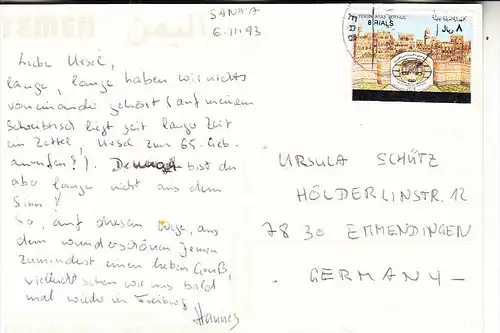 SANA'A
6.III.93
Liebe Ursel,
lange, lange haben wir nichts
voneinander gehört (auf meinem
Schreibtisch liegt seit langer Zeit
ein Zettel, Ursel zum 65. Geb.
anrufen!). bist du
aber lange nicht aus dem
Sinn!
So, auf diesem Wege, aus
dem wunderschönen Jemen
zumindest einen lieben Gruß,
vielleicht sehen wir uns bald
mal wieder in Freiburg
Hannes
8 RIALS
٨ ريال
URSULA SCHÜTZ
HÖLDERLINSTR. 12
7830 EMMENDINGEN
GERMANY
YEMEN
اليمن